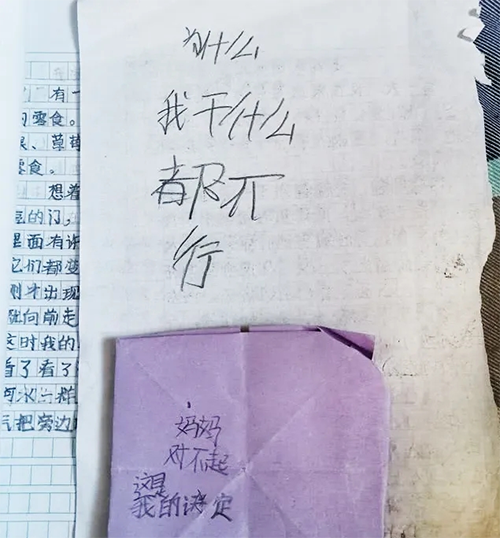 有一
零食。
、草莓
零食。
想着
的门,
里面有许
它们都变
刚才出现
向前走
这时我的
看了看了
河水一样
把旁边
为什么
我干什么
都不
行
妈妈
对不起
这是
我的决定